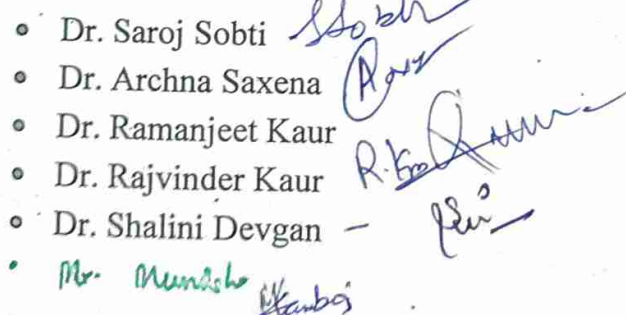 • Dr. Saroj Sobti Sobti
• Dr. Archna Saxena
• Dr. Ramanjeet Kaur
• Dr. Rajvinder Kaur R.Kaur
• Dr. Shalini Devgan –
• Mr. Munish Kamboj